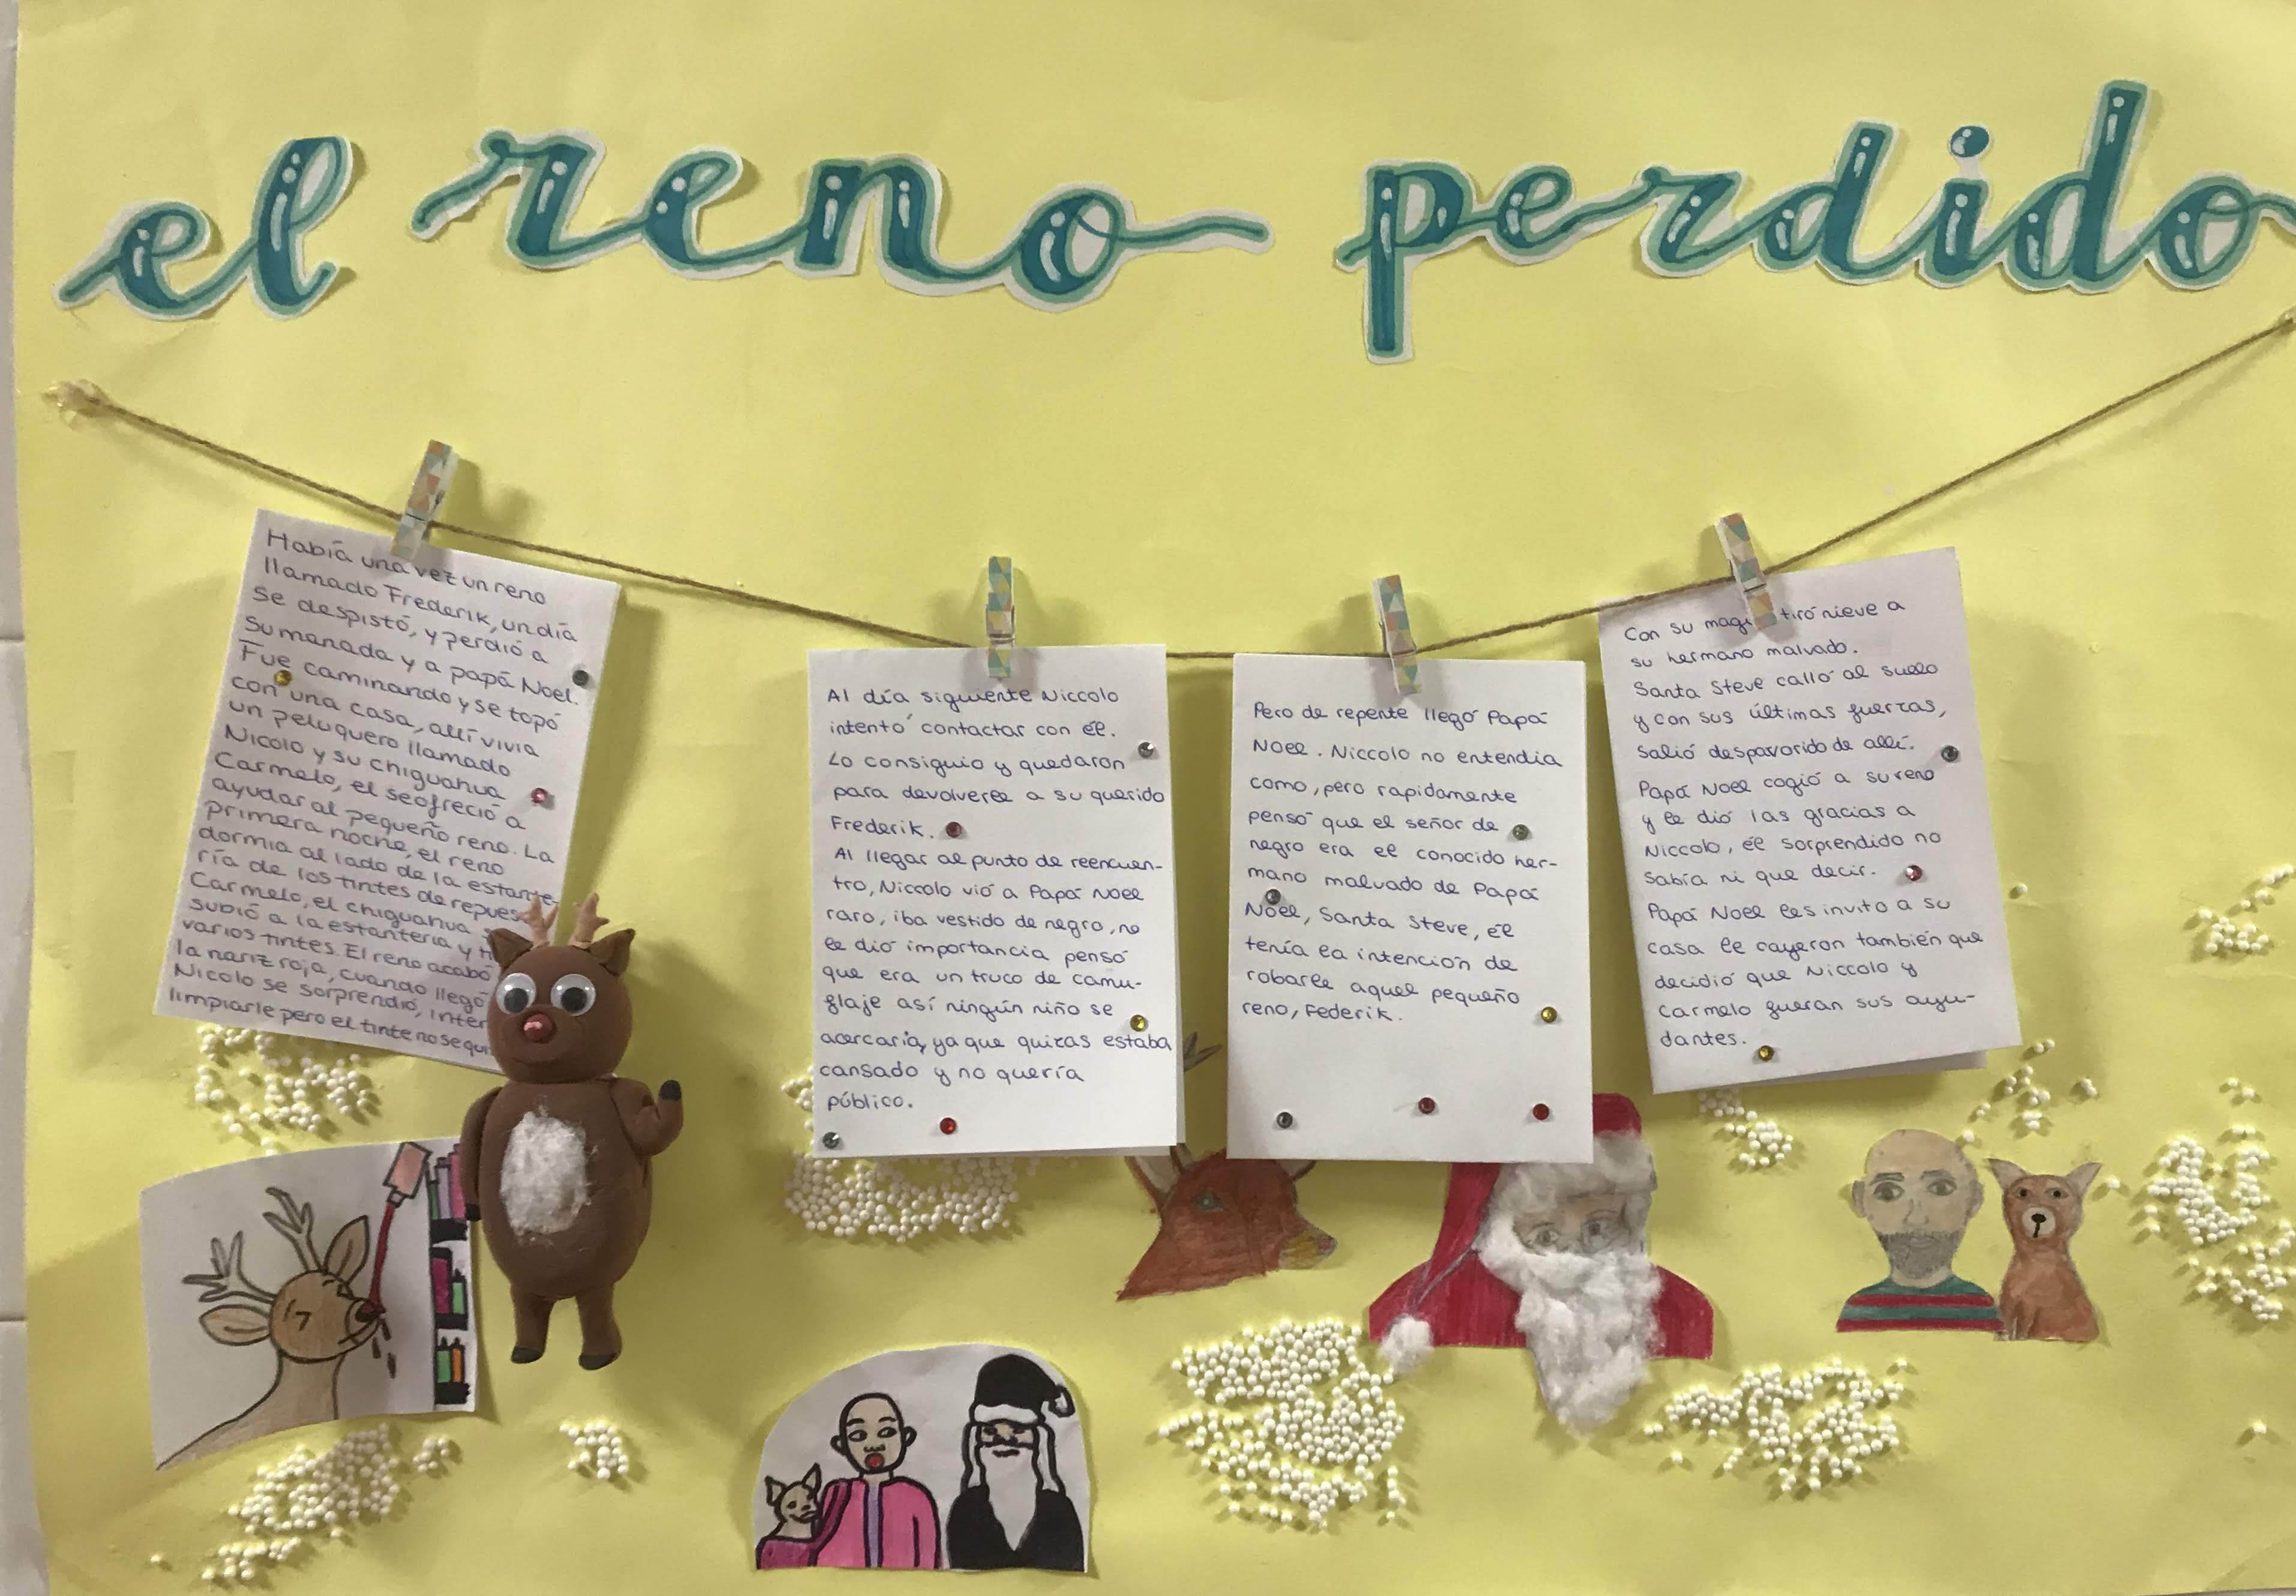 el reno perdido
Había una vez un reno
llamado Frederik, un día
se despistó, y perdió a
su manada y a papá Noel.
Fue caminando y se topó
con una casa, allí vivia
un peluquero llamado
Nicolo y su chiguahua
Carmelo, el seofreció a
ayudar al pequeño reno. La
primera noche, el reno
dormia al lado de la estante-
ría de los tintes de repues
Carmelo, el chiguahua
subió a la estantería y
varios tintes. El reno acabó
la nariz roja, cuando llegó
Nicolo se sorprendió,
limpiarle pero el tinte no se
Al día siguiente Niccolo
intentó contactar con él.
Lo consiguio y quedaron
para devolverle a su querido
Frederik.
Al llegar al punto de reencuen-
tro, Niccolo vió a Papá Noel
raro, iba vestido de negro, no
le dió importancia pensó
que era un truco de camu-
flaje así ningún niño se
acercaría, ya que quizas estaba
cansado y no quería
público.
Pero de repente llegó Papá
Noel. Niccolo no entendia
como, pero rapidamente
pensó que el señor de
negro era el conocido her-
mano malvado de Papá
Noel, Santa Steve, él
tenía la intención de
robarle aquel pequeño
reno, Federik.
Con su magi tiró nieve a
su hermano malvado.
Santa Steve calló al suelo
y con sus últimas fuerzas,
salió despavorido de allí.
Papá Noel cogió a su reno
y le dió las gracias a
Niccolo, él sorprendido no
sabía ni que decir.
Papá Noel les invito a su
casa le cayeron también que
decidió que Niccolo y
Carmelo fueran sus ayu-
dantes.